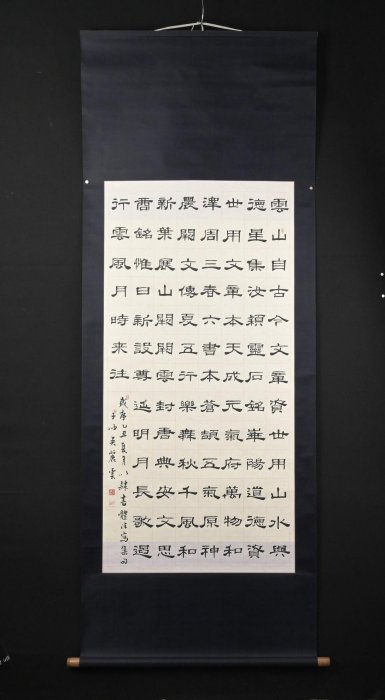 雲山自古今文章資世用山水與
德星集汝潁靈石銘華陽道德資
世用文章本天成元氣府萬物和
澤周三春六書本蒼頡五氣原神
農闕文傳夏五行樂舞秋千風和
新葉展山雲封唐典安文思
商銘惟日新設尊延明月長歌遏
行雲風月時來往
歲序乙丑夏月以隸書體法寫集句
吳麗雲